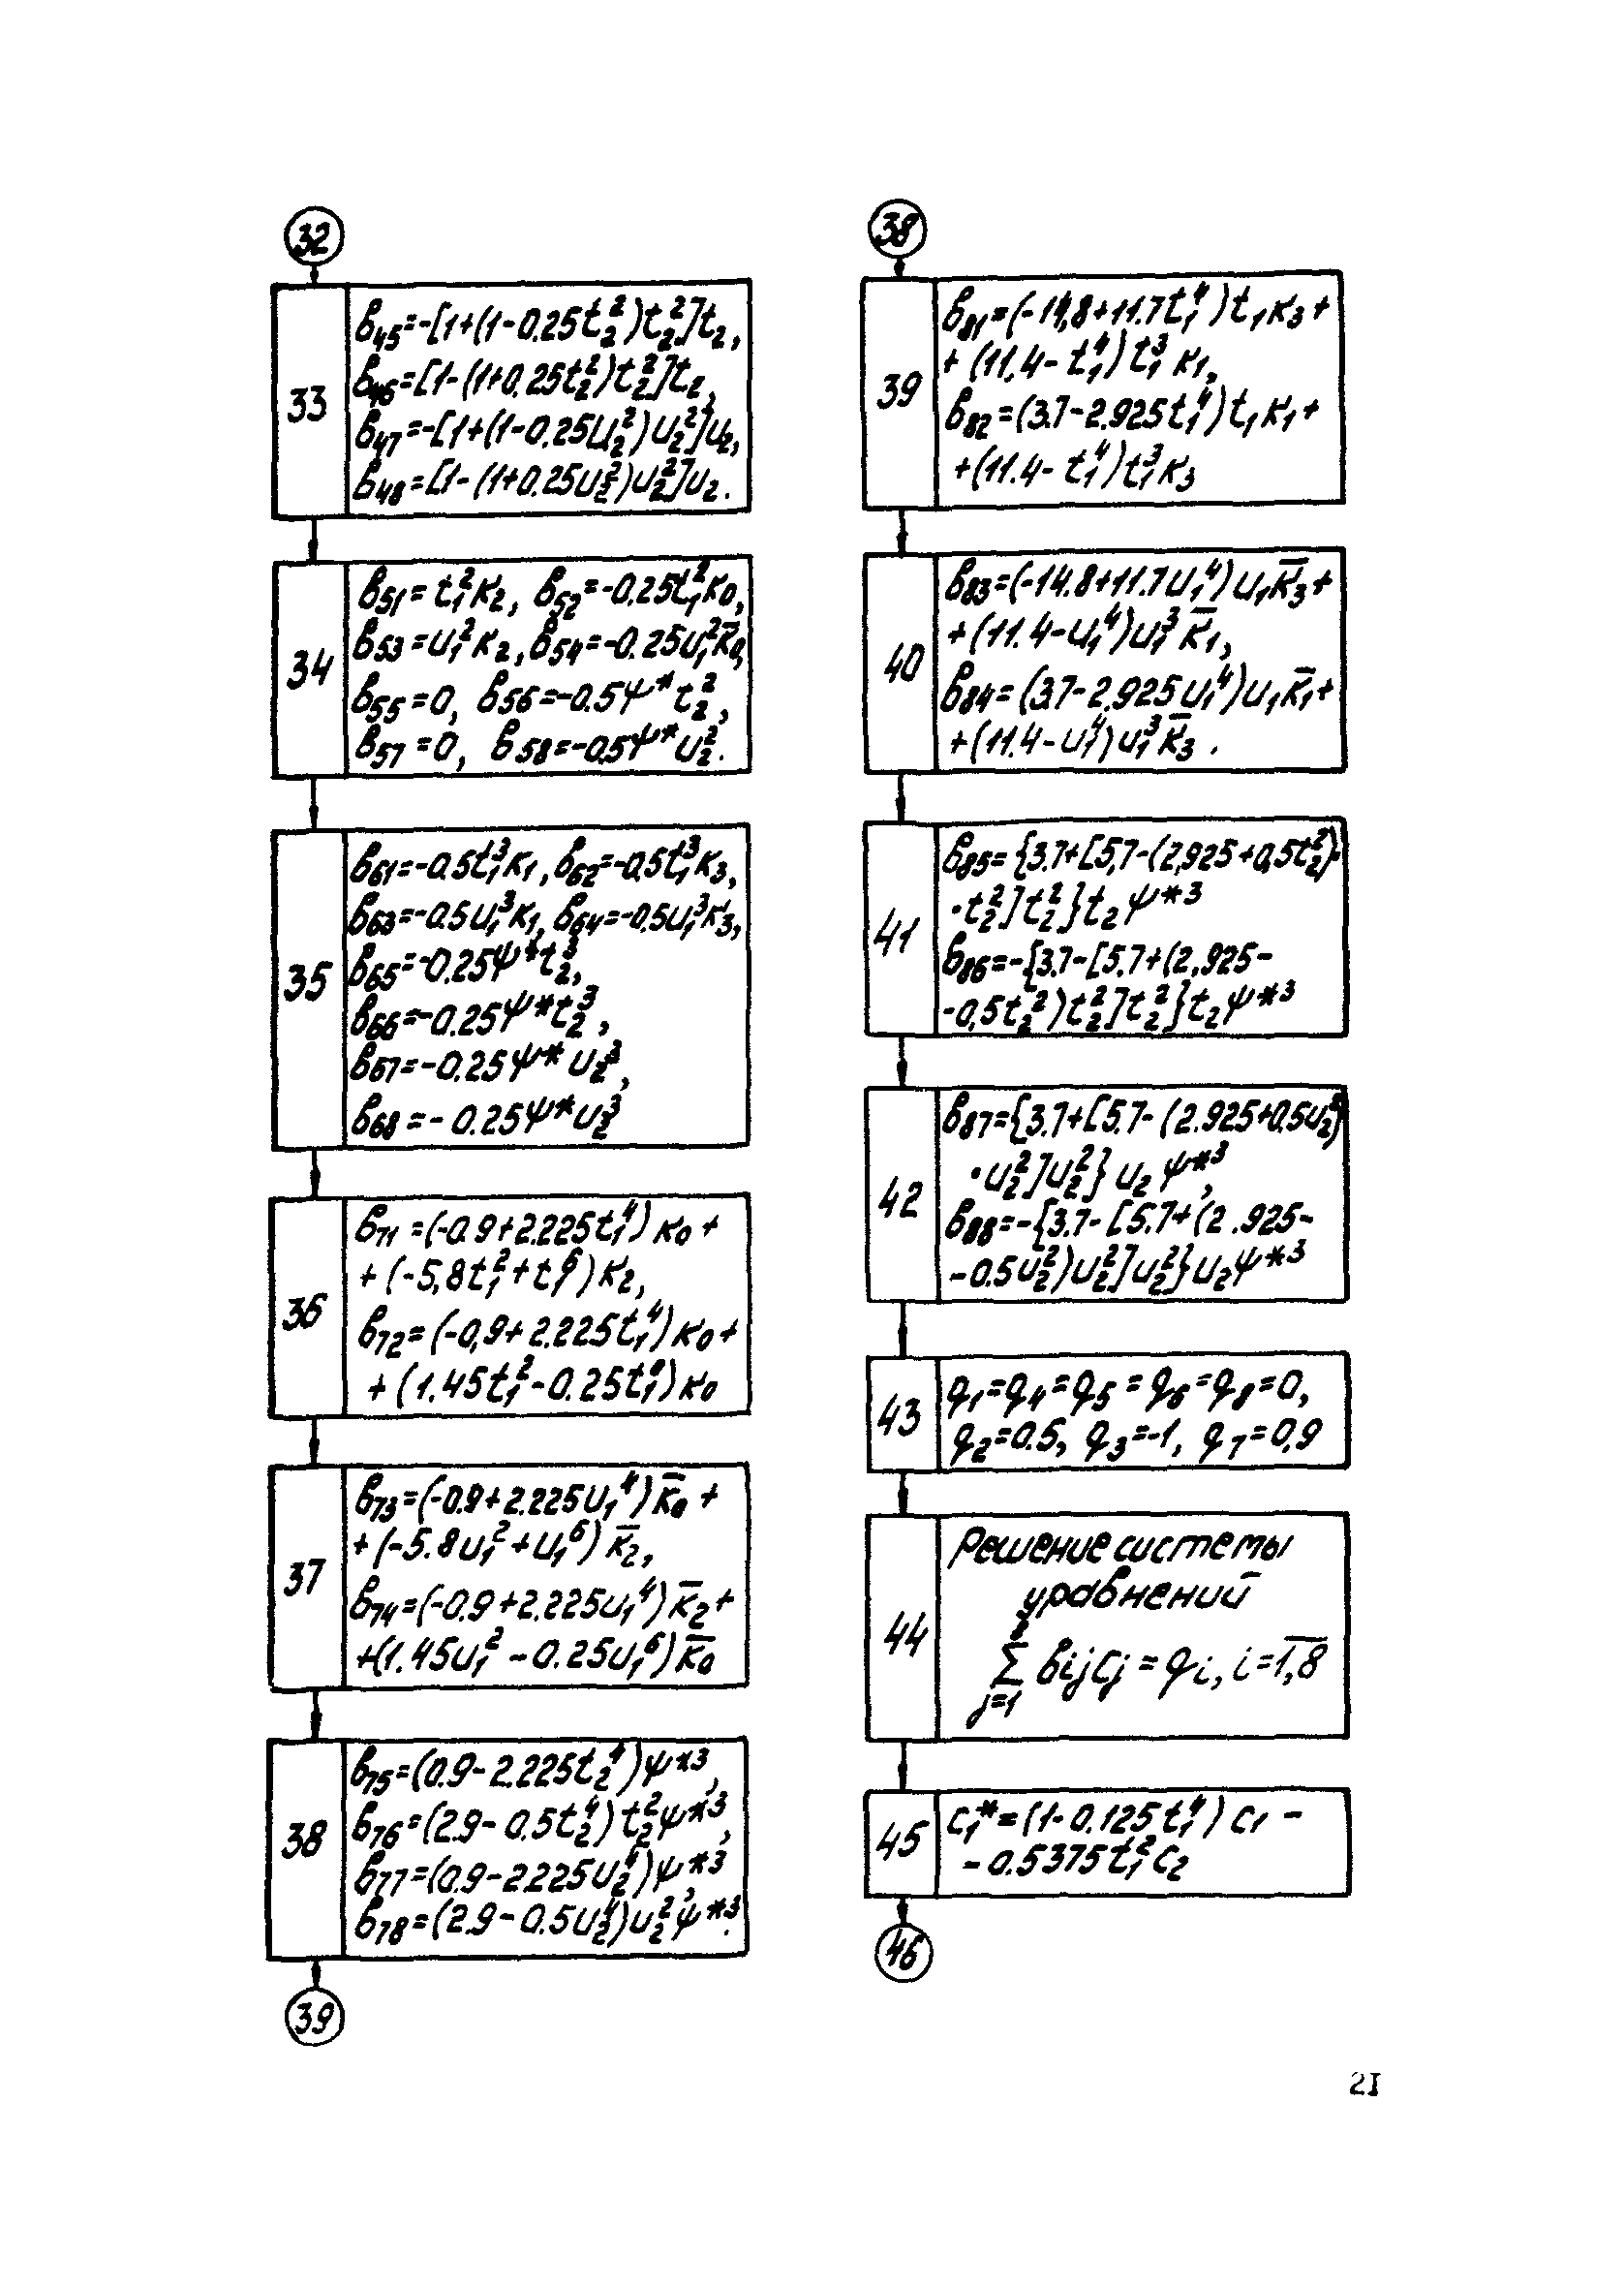 32
33
B₄₅=-[1+(1-0.25t₂²)t₂²]t₂,
B₄₆=[1-(1+0.25t₂²)t₂²]t₂,
B₄₇=-[1+(1-0.25u₂²)u₂²]u₂,
B₄₈=[1-(1+0.25u₂²)u₂²]u₂.
34
B₅₁=t₁²K₂, B₅₂=-0.25t₁²K₀,
B₅₃=u₁²K₂, B₅₄=-0.25u₁²K̅₀,
B₅₅=0, B₅₆=-0.5ψ*t₂²,
B₅₇=0, B₅₈=-0,5ψ*u₂².
35
B₆₁=-0.5t₁³K₁, B₆₂=-0,5t₁³K₃,
B₆₃=-0.5u₁³K₁, B₆₄=-0.5u₁³K₃,
B₆₅=-0.25ψ*t₂³,
B₆₆=-0.25ψ*t₂³,
B₆₇=-0.25ψ*u₂³,
B₆₈=-0.25ψ*u₂³
36
B₇₁=(-0.9+2.225t₁⁴)K₀+
+(-5,8t₁²+t₁⁶)K₂,
B₇₂=(-0,9+2.225t₁⁴)K₀+
+(1.45t₁²-0.25t₁⁶)K₀
37
B₇₃=(-0.9+2.225u₁⁴)K̅₀+
+(-5.8u₁²+u₁⁶)K̅₂,
B₇₄=(-0.9+2.225u₁⁴)K̅₂+
+(1.45u₁²-0.25u₁⁶)K̅₀
38
B₇₅=(0.9-2.225t₂⁴)ψ*³,
B₇₆=(2.9-0.5t₂⁴)t₂²ψ*³,
B₇₇=(0.9-2.225u₂⁴)ψ*³,
B₇₈=(2.9-0.5u₂⁴)u₂²ψ*³.
39
38
39
B₈₁=(-14,8+11.7t₁⁴)t₁K₃+
+(11.4-t₁⁴)t₁³K₁,
B₈₂=(3.7-2.925t₁⁴)t₁K₁+
+(11.4-t₁⁴)t₁³K₃
40
B₈₃=(-14.8+11.7u₁⁴)u₁K̅₃+
+(11.4-u₁⁴)u₁³K̅₁,
B₈₄=(3.7-2.925u₁⁴)u₁K̅₁+
+(11.4-u₁⁴)u₁³K̅₃.
41
B₈₅={3.7+[5,7-(2,925+0,5t₂²)·
·t₂²]t₂²}t₂ψ*³
B₈₆=-{3.7-[5.7+(2,925-
-0,5t₂²)t₂²]t₂²}t₂ψ*³
42
B₈₇={3.7+[5.7-(2.925+0.5u₂²)
·u₂²]u₂²}u₂ψ*³,
B₈₈=-{3.7-[5.7+(2.925-
-0.5u₂²)u₂²]u₂²}u₂ψ*³
43
q₁=q₄=q₅=q₆=q₈=0,
q₂=0.5, q₃=-1, q₇=0,9
44
Решение системы
уравнений
8
Σ Bᵢⱼcⱼ=qᵢ, i=1,8
j=1
45
c₁*=(1-0.125t₁⁴)c₁-
-0.5375t₁²c₂
46
21